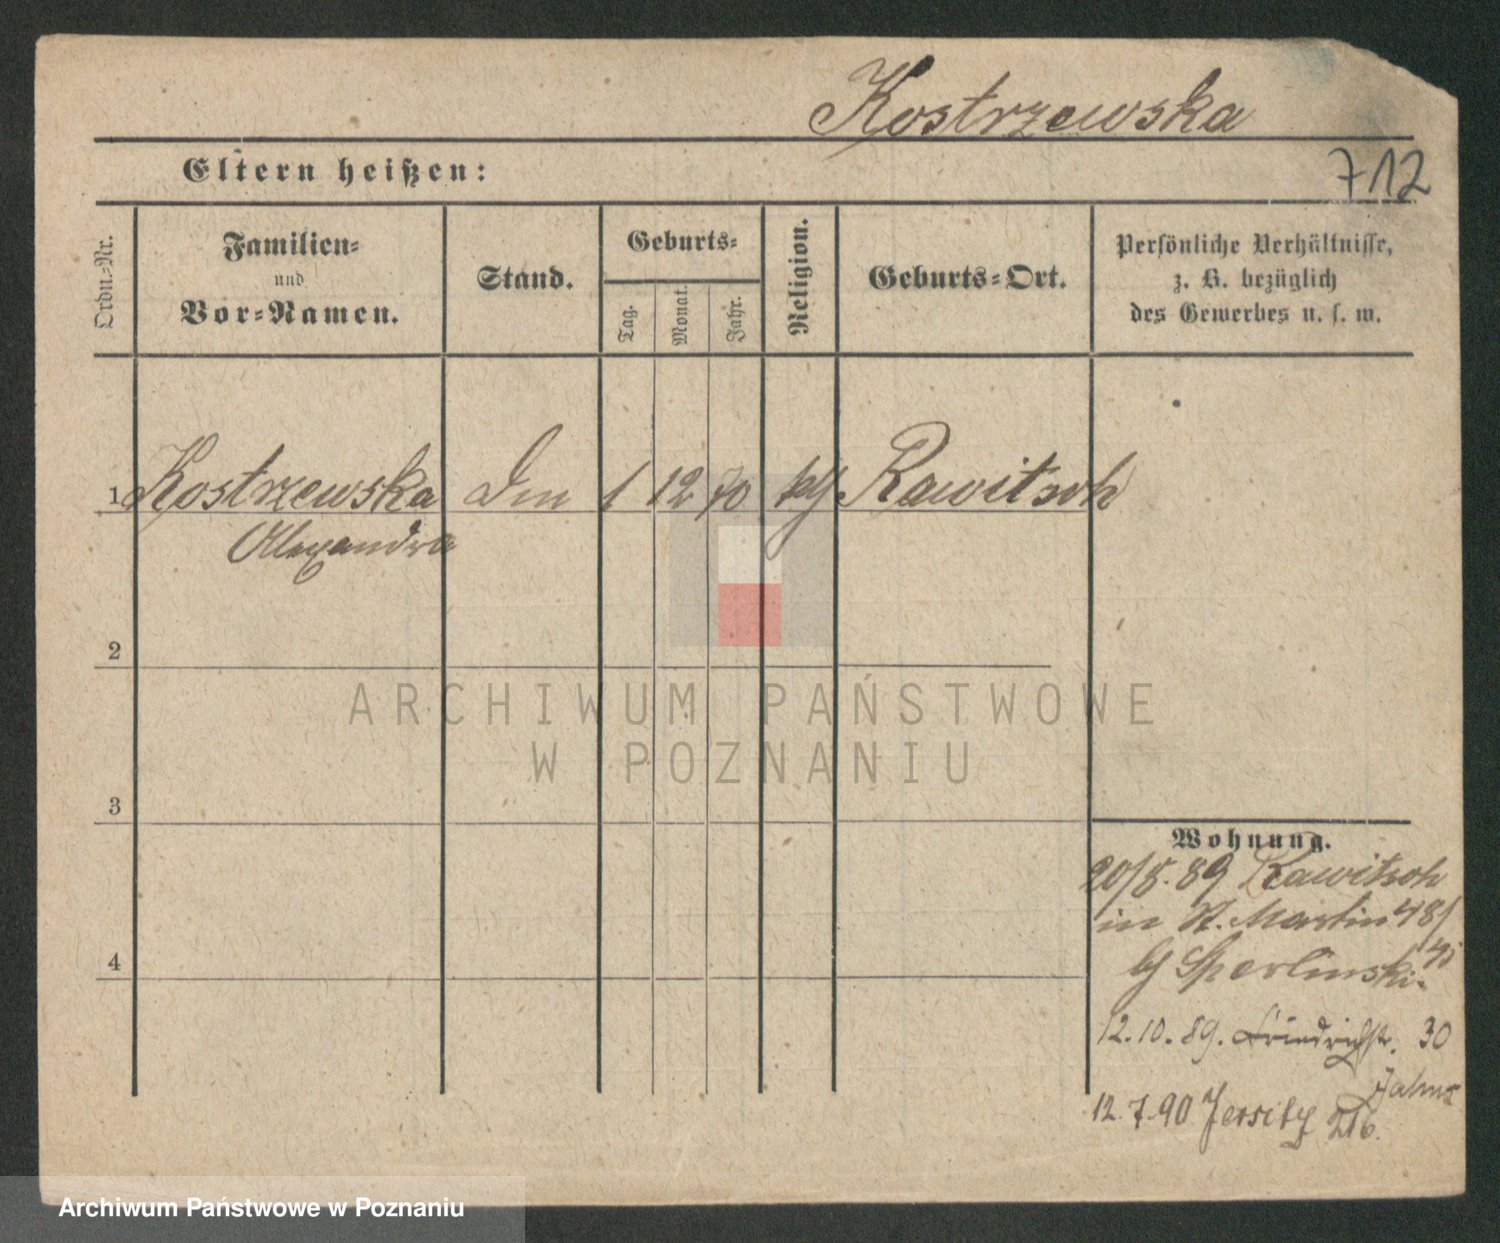 Kostrzewska
Eltern heißen:
712
Ordn.-Nr.
Familien-
und
Vor-Namen.
Stand.
Geburts-
Tag.
Monat.
Jahr.
Religion.
Geburts-Ort.
Persönliche Verhältnisse,
z. B. bezüglich
des Gewerbes u. s. w.
1 Kostrzewska 1 12 70 Rawitsch
Alexandra
2
ARCHIWUM PAŃSTWOWE
W POZNANIU
3
Wohnung.
20/8.89 Rawitsch
in St. Martin 48/
4
Sperlinski
12.10.89. Friedrichstr. 30
12.7.90 Jersitz 216.
Archiwum Państwowe w Poznaniu